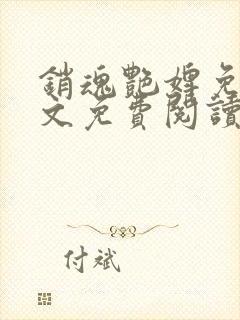 銷魂艷婢免
文免費閱讀
付斌